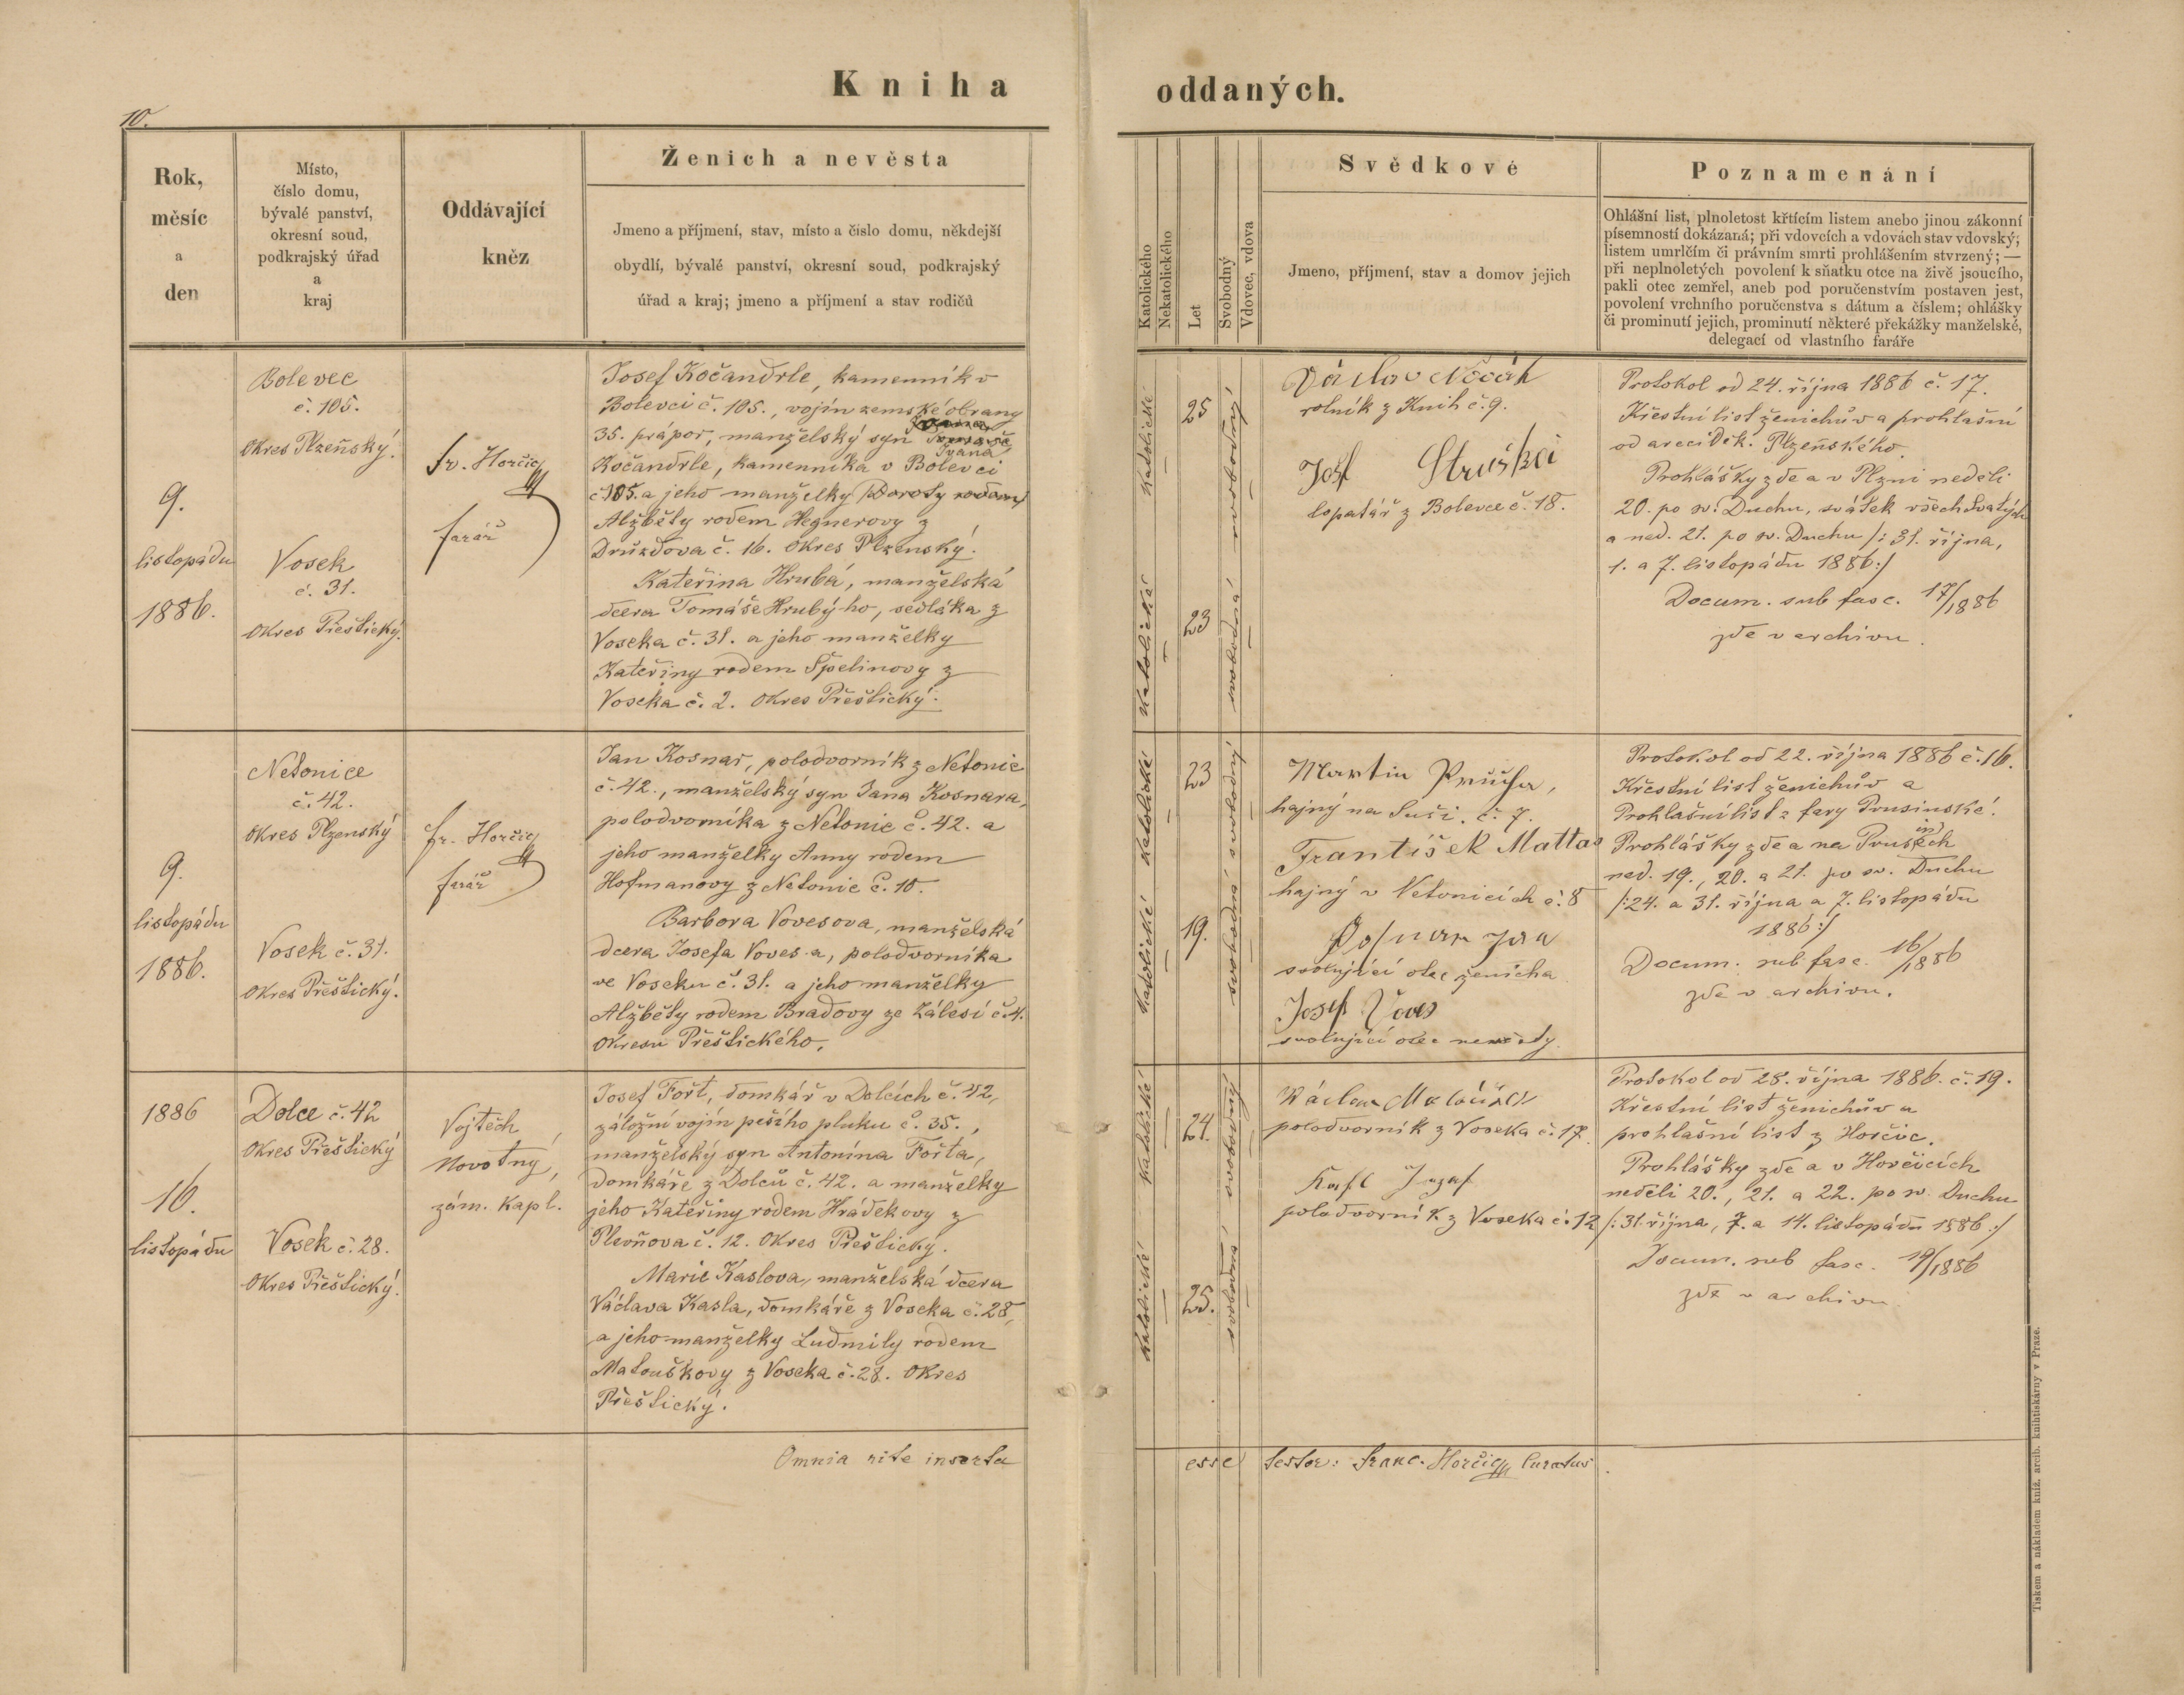 Kniha oddaných.
10.
Rok,
měsíc
a
den
Místo,
číslo domu,
bývalé panství,
okresní soud,
podkrajský úřad
a
kraj
Oddávající
kněz
Ženich a nevěsta
Jmeno a příjmení, stav, místo a číslo domu, někdejší
obydlí, bývalé panství, okresní soud, podkrajský
úřad a kraj; jmeno a příjmení a stav rodičů
Katolického
Nekatolického
Let
Svobodný
Vdovec, vdova
Svědkové
Jmeno, příjmení, stav a domov jejich
Poznamenání
Ohlášní list, plnoletost křtícím listem anebo jinou zákonní
písemností dokázaná; při vdovcích a vdovách stav vdovský,
listem umrlčím či právním smrti prohlášením stvrzený; —
při neplnoletých povolení k sňatku otce na živě jsoucího,
pakli otec zemřel, aneb pod poručenstvím postaven jest,
povolení vrchního poručenstva s dátum a číslem; ohlášky
či prominutí jejich, prominutí některé překážky manželské,
delegací od vlastního faráře
9.
listopádu
1886.
Bolevec
č. 105.
Okres Plzeňský.
Vosek
č. 31.
Okres Přeštický.
Fr. Horčic
farář
Josef Kočandrle, kamenník v
Bolevci č. 105., vojín zemské obrany
35. prápor, manželský syn
Ivana
Kočandrle, kamenníka v Bolevci
č. 105. a jeho manželky Doroty rodem
Alžběty rodem Hegnerovy z
Druzdova č. 16. Okres Plzenský.
Kateřina Hrubá, manželská
dcera Tomáše Hrubýho, sedláka z
Voseka č. 31. a jeho manželky
Kateřiny rodem Špelinovy z
Voseka č. 2. Okres Přeštický.
katolické
katolické
25
23
svobodný
svobodná
Václav
rolník z Knih č. 9.
Josef Struski
lopatář z Bolevce č. 18.
Protokol od 24. října 1886 č. 17.
Křestní list ženichův a prohlašní
od arciděk. Plzeňského.
Prohlášky zde a v Plzni neděli
20. po sv. Duchu, svátek všech svatých
a ned. 21. po sv. Duchu /: 31. října,
1. a 7. listopádu 1886 :/
Docum. sub fasc. 17/1886
zde v archivu.
9.
listopádu
1886.
Netonice
č. 42.
Okres Plzenský
Vosek č. 31.
Okres Přeštický.
Fr. Horčic
farář
Jan Kosnar, polodvorník z Netonic
č. 42., manželský syn Jana Kosnara,
polodvorníka z Netonic č. 42. a
jeho manželky Anny rodem
Hofmanovy z Netonic č. 10.
Barbora Vovesova, manželská
dcera Josefa Vovesa, polodvorníka
ve Voseku č. 31. a jeho manželky
Alžběty rodem Bradovy ze Zálesí č. 4.
Okresu Přeštického.
katolické
katolické
23
19.
svobodný
svobodná
Martin Průcha,
hajný na Suši. č. 7.
František Mattas
hajný v Netonicích č. 8
Kosnar Jan
svolující otec ženicha
Josef Voves
svolující otec nevěsty.
Protokol od 22. října 1886 č. 16.
Křestní list ženichův a
Prohlašní list z fary Prusinské.
Prohlášky zde a na Prusech
ned. 19., 20. a 21. po sv. Duchu
/: 24. a 31. října a 7. listopádu
1886 :/
Docum. sub fasc. 16/1886
zde v archivu.
1886
16.
listopádu
Dolce č. 42
Okres Přeštický
Vosek č. 28.
Okres Přeštický.
Vojtěch
Novotný,
zám. kapl.
Josef Fořt, domkář v Dolcích č. 42,
záložní vojín pěšího pluku č. 35.,
manželský syn Antonína Fořta,
domkáře z Dolců č. 42. a manželky
jeho Kateřiny rodem Hrádkovy z
Plevňova č. 12. Okres Přeštický.
Marie Kaslova, manželská dcera
Václava Kasla, domkáře z Voseka č. 28,
a jeho manželky Ludmily rodem
Matouškovy z Voseka č. 28. Okres
Přeštický.
katolické
katolické
24.
25.
svobodný
svobodná
Václav Matoušek
polodvorník z Voseka č. 17.
Kasl Jozef
polodvorník z Voseka č. 12
Protokol od 28. října 1886. č. 19.
Křestní list ženichův a
prohlašní list z Horčic.
Prohlášky zde a v Horčicích
neděli 20., 21. a 22. po sv. Duchu
/: 31. října, 7. a 14. listopádu 1886 :/
Docum. sub fasc. 19/1886
zde v archivu.
Omnia rite inserta esse testor: Franc. Horčic Curatus.
Tiskem a nákladem kníž. arcib. knihtiskárny v Praze.